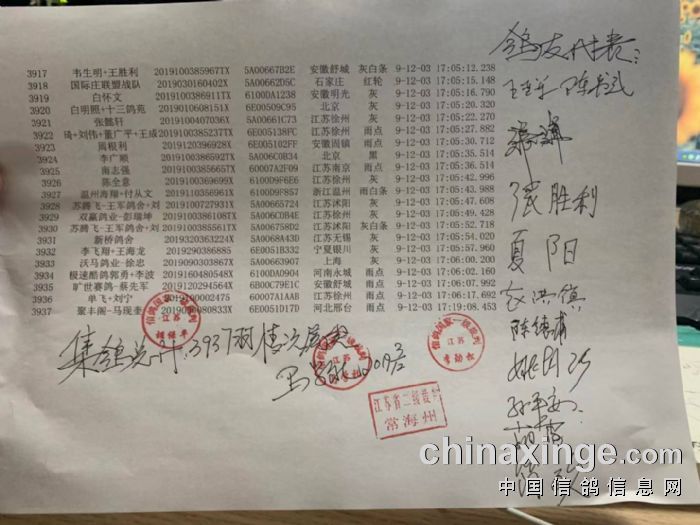 3917 韦生明+王胜利 2019100385967TX 5A00667B2E 安徽舒城 灰白条 9-12-03 17:05:12.238
3918 国际庄联盟战队 2019030160402X 5A00662D5C 石家庄 红轮 9-12-03 17:05:15.148
3919 白怀文 2019100386911TX 6100DA1238 安徽明光 灰 9-12-03 17:05:16.790
3920 白明照+十三鸽苑 2019010608151X 6E00509C95 北京 灰 9-12-03 17:05:20.320
3921 张懿轩 2019100407036X 5A00661C73 江苏徐州 灰 9-12-03 17:05:22.270
3922 琦+刘伟+董广平+王成 2019100385237TX 6E005138FC 江苏徐州 雨点 9-12-03 17:05:27.882
3923 周根利 2019120396928X 6E005102FF 安徽固镇 雨点 9-12-03 17:05:30.712
3924 李广顺 2019100386592TX 5A006C0B34 北京 黑 9-12-03 17:05:35.514
3925 南志强 2019100385665TX 60007A2F09 江苏南京 雨点 9-12-03 17:05:36.514
3926 陈全意 2019100369699X 610009F6E6 江苏徐州 灰 9-12-03 17:05:42.996
3927 温州海翔+付从文 2019110356961X 610009F857 浙江温州 雨白条 9-12-03 17:05:43.988
3928 苏腾飞-王军鸽舍+刘 2019100727931X 5A00665724 江苏沭阳 灰 9-12-03 17:05:47.608
3929 双赢鸽业-彭瑞坤 2019100386108TX 5A006C0B4E 江苏徐州 灰 9-12-03 17:05:49.428
3930 苏腾飞-王军鸽舍+刘 2019100385551TX 5A006758D2 江苏沭阳 灰白条 9-12-03 17:05:52.718
3931 新桥鸽舍 2019320363224X 5A0068A43D 江苏无锡 灰 9-12-03 17:05:54.020
3932 李飞翔+王海龙 2019290386885 6E0051B332 宁夏银川 雨点 9-12-03 17:05:57.960
3933 沃马鸽业-徐忠 2019090303867X 5A00663907 上海 灰 9-12-03 17:06:00.160
3934 极速酷鸽郭勇+李波 2019160480548X 6100DA0904 河南永城 雨点 9-12-03 17:06:02.160
3935 旷世赛鸽-蔡先军 2019120294564X 6B00C79E1C 安徽舒城 雨点 9-12-03 17:06:07.992
3936 单飞+刘宁 2019100002475 60007A1AAB 江苏徐州 雨点 9-12-03 17:06:17.692
3937 聚丰阁-马现奎 2019090380833X 6E0051D17D 河北邢台 雨点 9-12-03 17:19:08.453
鸽友代表:
张胜利
夏阳
集鸽总计:3937羽情况属实
信鸽国家一级裁判
江苏
江苏
江苏
李劲松
江苏省二级裁判
常海州
chinaxinge.com
中国信鸽信息网